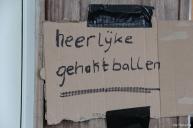 heerlijke
gehaktballen